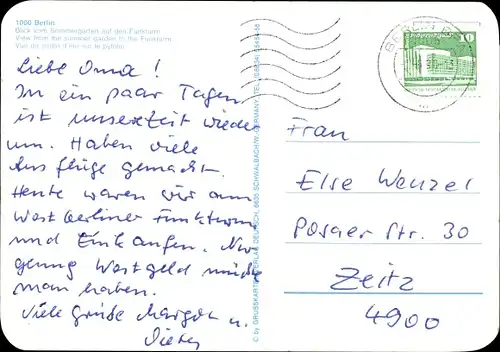 1000 Berlin
Blick vom Sommergarten auf den Funkturm
View from the summer garden to the Funkturm
Liebe Oma!
In ein paar Tagen
ist unsere Zeit wieder
um. Haben viele
Ausflüge gemacht.
Heute waren wir am
Westberliner Funkturm
und Einkaufen. Nur
genug Westgeld müßte
man haben.
Viele Grüße Margot u.
Dieter
© by GRUSSKARTEN-VERLAG DEUTSCH, 6835 SCHWALBACH/W. GERMANY, TEL.
BERLIN
10
DDR
Frau
Else Wenzel
Posaer Str. 30
Zeitz
4900